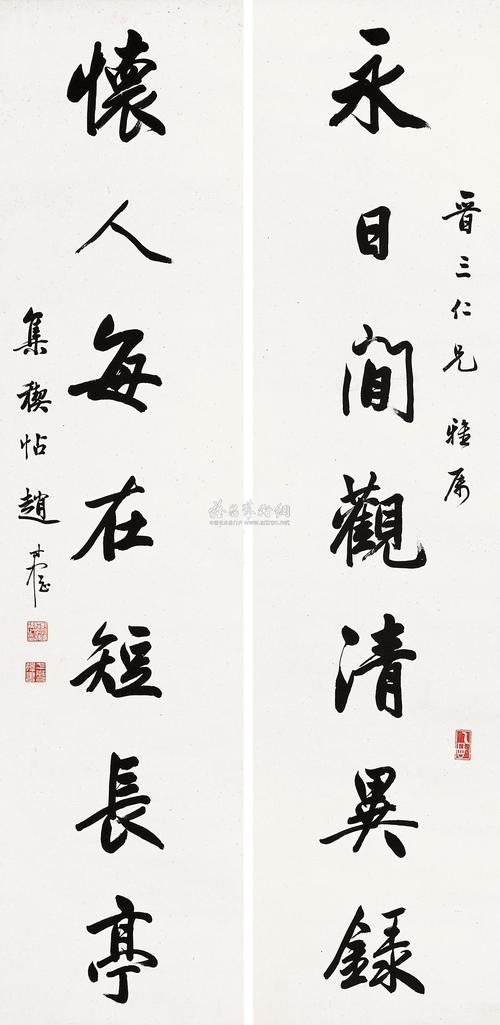 晉三仁兄 雅属
永日閒觀清異錄
懷人每在短長亭
集稧帖 趙
雅昌藝術網
www.artron.net